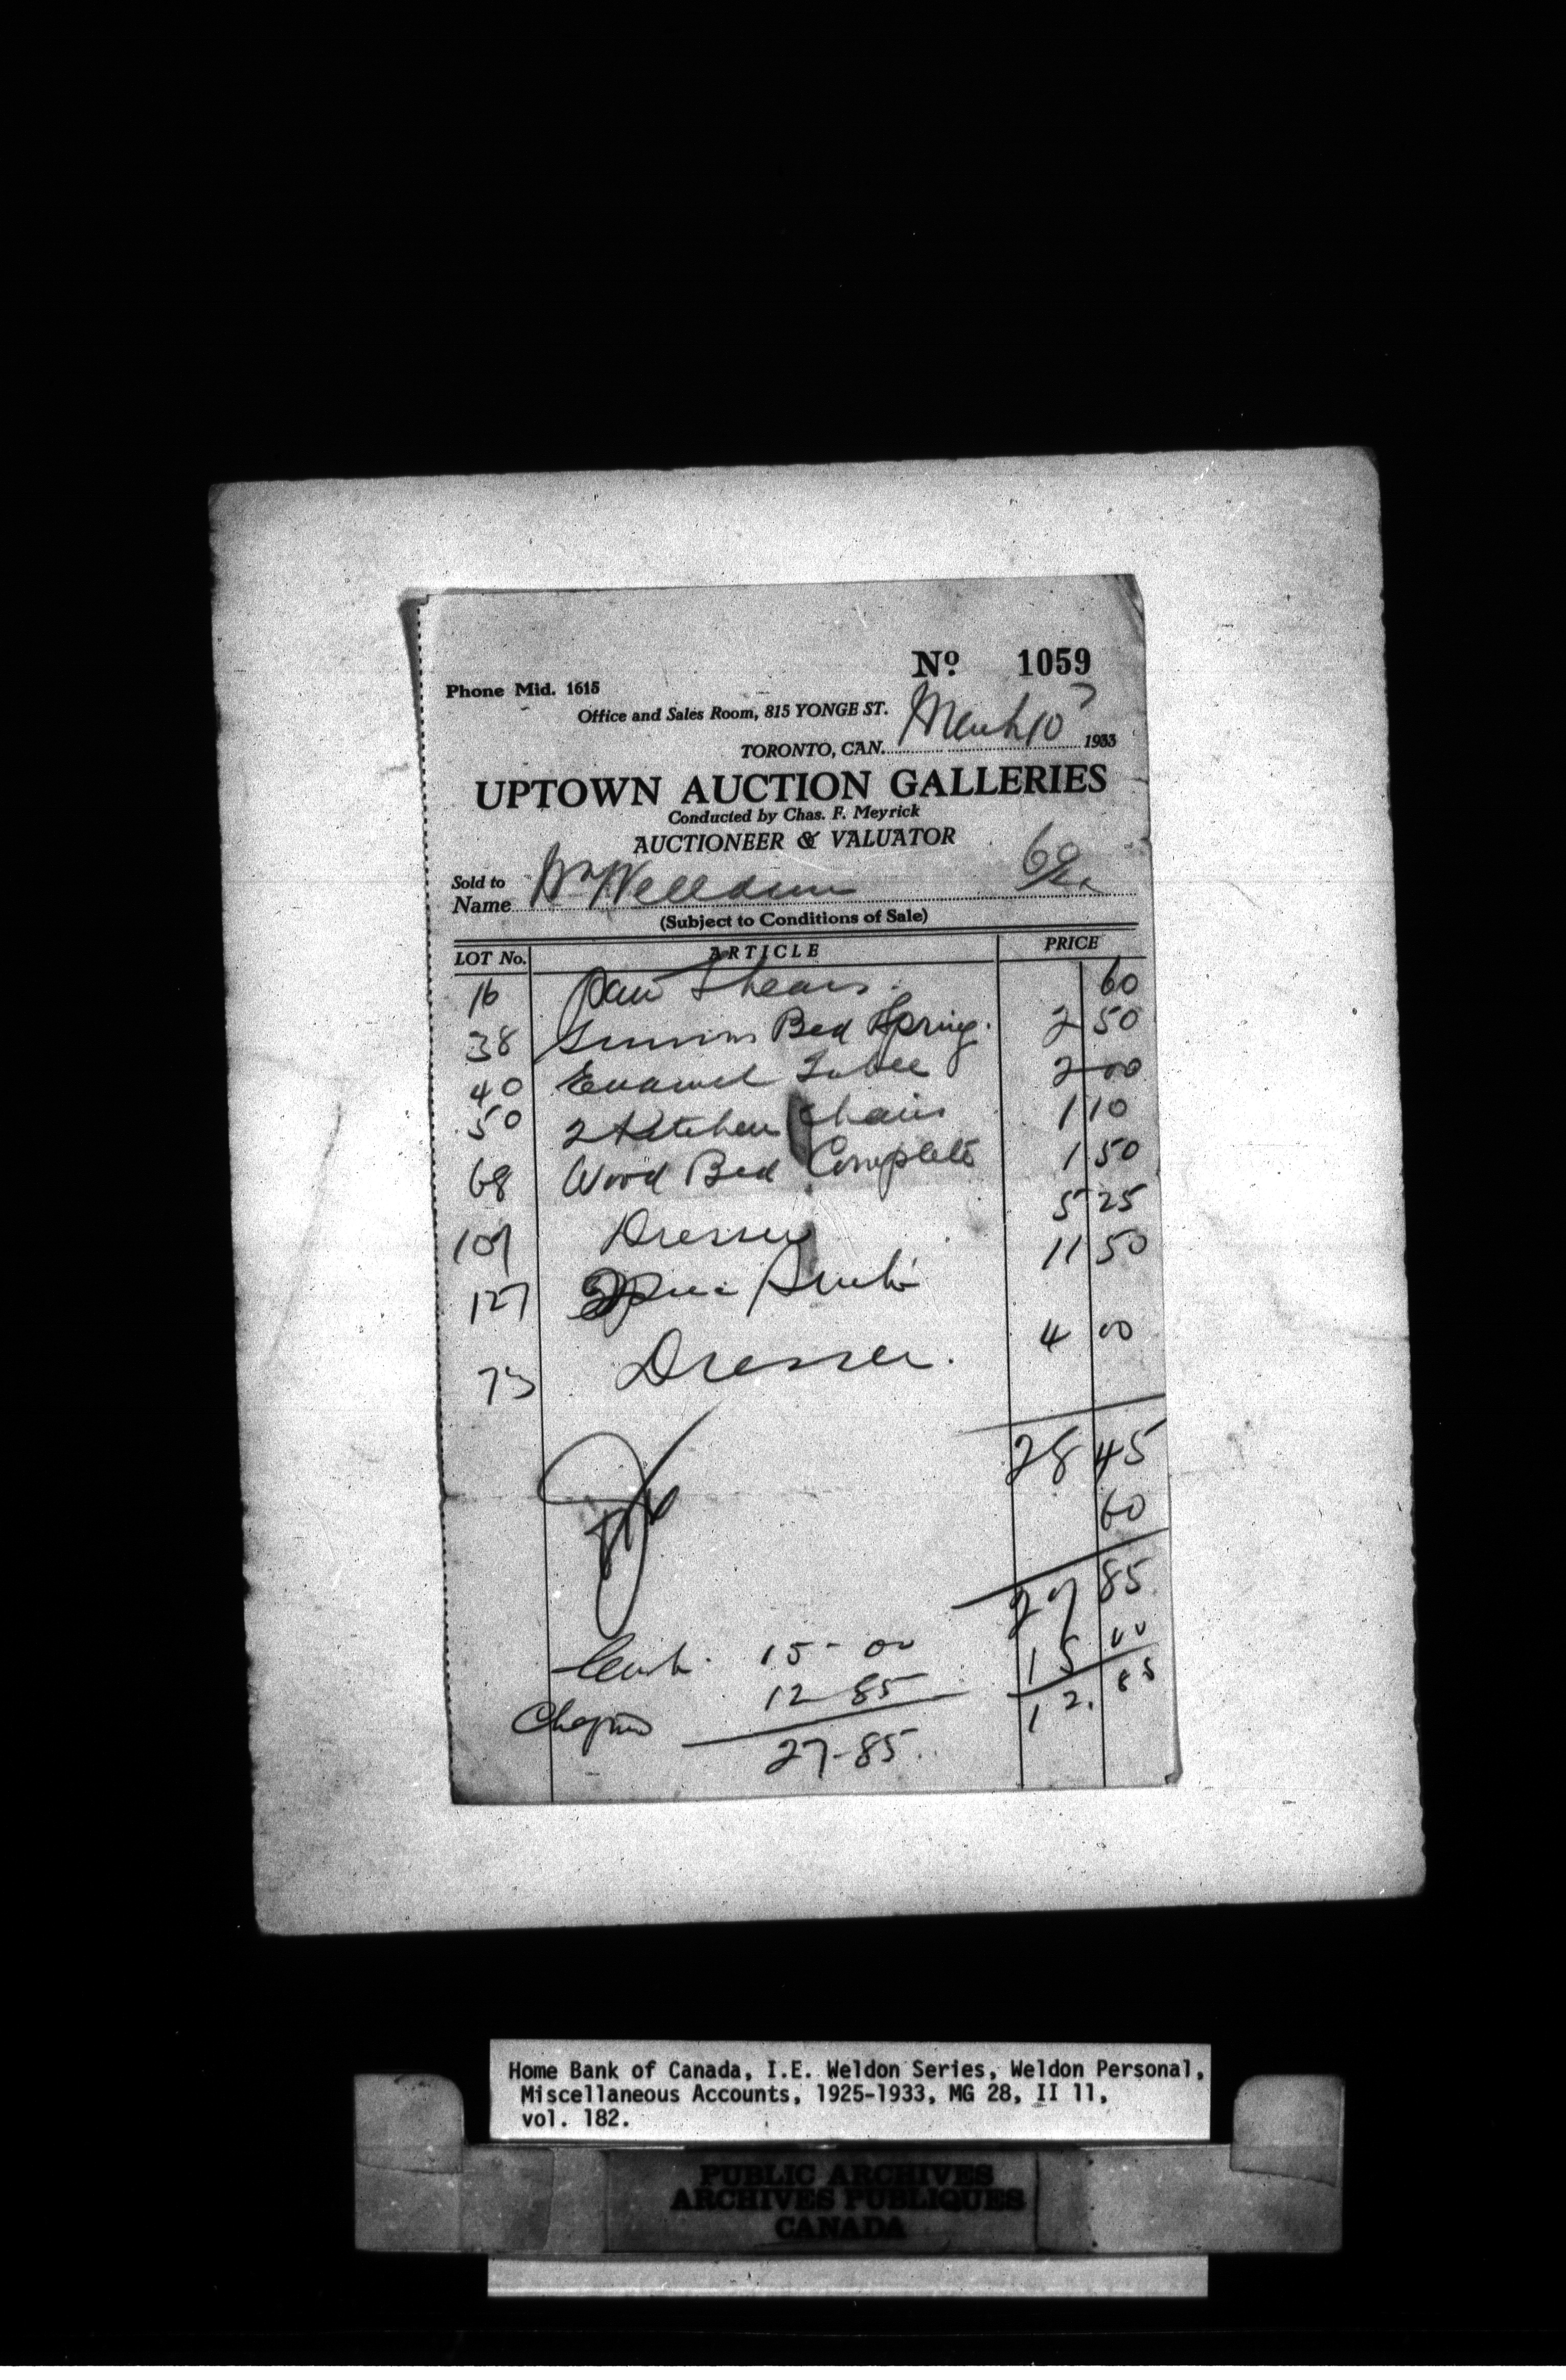 Nº 1059
Phone Mid. 1615
Office and Sales Room, 815 YONGE ST.
TORONTO, CAN. March 10 1933
UPTOWN AUCTION GALLERIES
Conducted by Chas. F. Meyrick
AUCTIONEER & VALUATOR
Sold to
Name
(Subject to Conditions of Sale)
LOT No. ARTICLE PRICE
16 Shears. 60
38 Bed Spring. 2 50
40 Enamel Table 2 00
50 2 Kitchen Chairs 1 10
68 Wood Bed Complete 1 50
107 Dresser 5 25
127 11 50
73 Dresser. 4 00
28 45
60
27 85
Cash. 15-00 15 00
12 85 12. 85
27-85.
Home Bank of Canada, I.E. Weldon Series, Weldon Personal,
Miscellaneous Accounts, 1925-1933, MG 28, II 11,
vol. 182.
PUBLIC ARCHIVES
ARCHIVES PUBLIQUES
CANADA